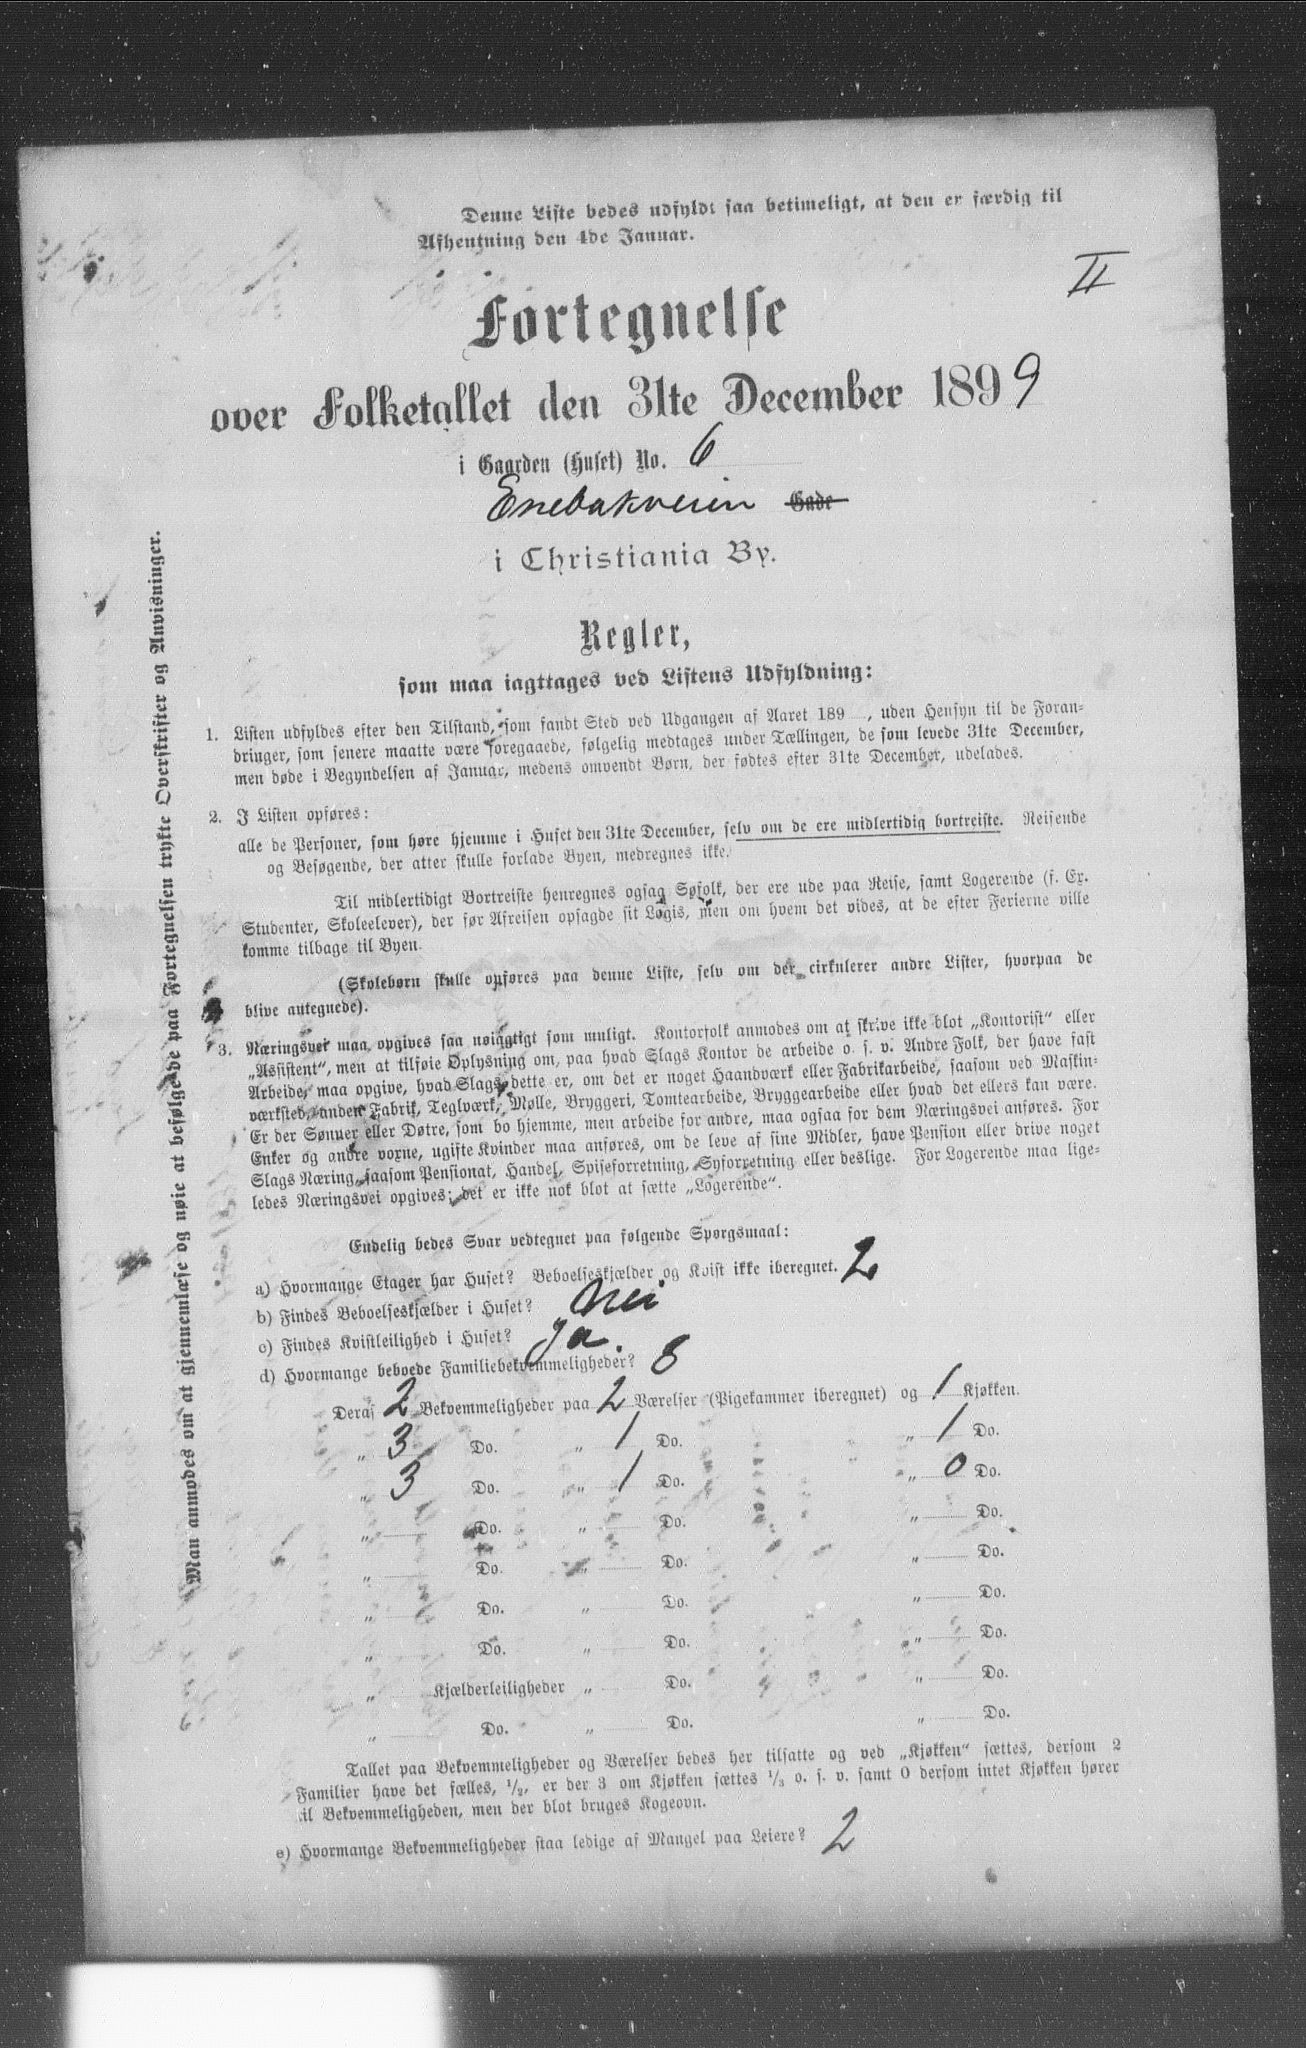 Denne Liste bedes udfyldt saa betimeligt, at den er færdig til
Afhentning den 4de Januar.
II
Fortegnelse
over Folketallet den 31te December 1899
i Gaarden (Huset) No. 6
Enebakveien Gade
i Christiania By.
Regler,
som maa iagttages ved Listens Udfyldning:
1. Listen udfyldes efter den Tilstand, som fandt Sted ved Udgangen af Aaret 189 , uden Hensyn til de Foran-
dringer, som senere maatte være foregaaede, følgelig medtages under Tællingen, de som levede 31te December,
men døde i Begyndelsen af Januar, medens omvendt Børn, der fødtes efter 31te December, udelades.
2. I Listen opføres:
alle de Personer, som høre hjemme i Huset den 31te December, selv om de ere midlertidig bortreiste. Reisende
og Besøgende, der atter skulle forlade Byen, medregnes ikke.
Til midlertidigt Bortreiste henregnes ogsaa Søfolk, der ere ude paa Reise, samt Logerende (f. Ex.
Studenter, Skoleelever), der før Afreisen opsagde sit Logis, men om hvem det vides, at de efter Ferierne ville
komme tilbage til Byen.
(Skolebørn skulle opføres paa denne Liste, selv om der cirkulerer andre Lister, hvorpaa de
blive antegnede).
3. Næringsvei maa opgives saa nøiagtigt som muligt. Kontorfolk anmodes om at skrive ikke blot „Kontorist“ eller
„Assistent“, men at tilføie Oplysning om, paa hvad Slags Kontor de arbeide o. s. v. Andre Folk, der have fast
Arbeide, maa opgive, hvad Slags dette er, om det er noget Haandværk eller Fabrikarbeide, saasom ved Maskin-
værksted, anden Fabrik, Teglværk, Mølle, Bryggeri, Tomtearbeide, Bryggearbeide eller hvad det ellers kan være.
Er der Sønner eller Døtre, som bo hjemme, men arbeide for andre, maa ogsaa for dem Næringsvei anføres. For
Enker og andre voxne, ugifte Kvinder maa anføres, om de leve af sine Midler, have Pension eller drive noget
Slags Næring, saasom Pensionat, Handel, Spiseforretning, Syforretning eller deslige. For Logerende maa lige-
ledes Næringsvei opgives; det er ikke nok blot at sætte „Logerende“.
Endelig bedes Svar vedtegnet paa følgende Spørgsmaal:
a) Hvormange Etager har Huset? Beboelseskjælder og Kvist ikke iberegnet. 2
b) Findes Beboelseskjælder i Huset? Nei
c) Findes Kvistleilighed i Huset? ja
d) Hvormange beboede Familiebekvemmeligheder? 8
Deraf 2 Bekvemmeligheder paa 2 Værelser (Pigekammer iberegnet) og 1 Kjøkken.
„ 3 Do. „ 1 Do. „ 1 Do.
„ 3 Do. „ 1 Do. „ 0 Do.
„ Do. „ Do. „ Do.
„ Do. „ Do. „ Do.
„ Do. „ Do. „ Do.
„ Do. „ Do. „ Do.
„ Kjælderleiligheder „ Do. „ Do.
„ Do. „ Do. „ Do.
Tallet paa Bekvemmeligheder og Værelser bedes her tilsatte og ved „Kjøkken“ sættes, dersom 2
Familier have det fælles, 1/2, er der 3 om Kjøkken sættes 1/3 o. s. v. samt 0 dersom intet Kjøkken hører
til Bekvemmeligheden, men der blot bruges Kogeovn.
e) Hvormange Bekvemmeligheder staa ledige af Mangel paa Leiere? 2
Man anmodes om at gjennemlæse og nøie at befølge de paa Fortegnelsen trykte Overskrifter og Anvisninger.